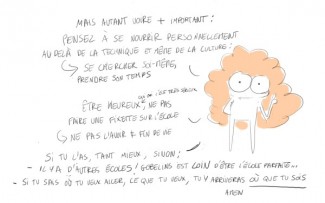 MAIS AUTANT VOIRE + IMPORTANT :
PENSEZ À SE NOURRIR PERSONNELLEMENT
AU DELÀ DE LA TECHNIQUE ET MÊME DE LA CULTURE :
↳ SE CHERCHER SOI-MÊME,
PRENDRE SON TEMPS
ÊTRE HEUREUX, NE PAS
FAIRE UNE FIXETTE SUR L'ÉCOLE
↳ NE PAS L'AVOIR ≠ FIN DE VIE
SI TU L'AS, TANT MIEUX, SINON :
- IL Y A D'AUTRES ÉCOLES ! GOBELINS EST LOIN D'ÊTRE L'ÉCOLE PARFAITE...
- SI TU SAIS OÙ TU VEUX ALLER, CE QUE TU VEUX, TU Y ARRIVERAS OÙ QUE TU SOIS
AMEN